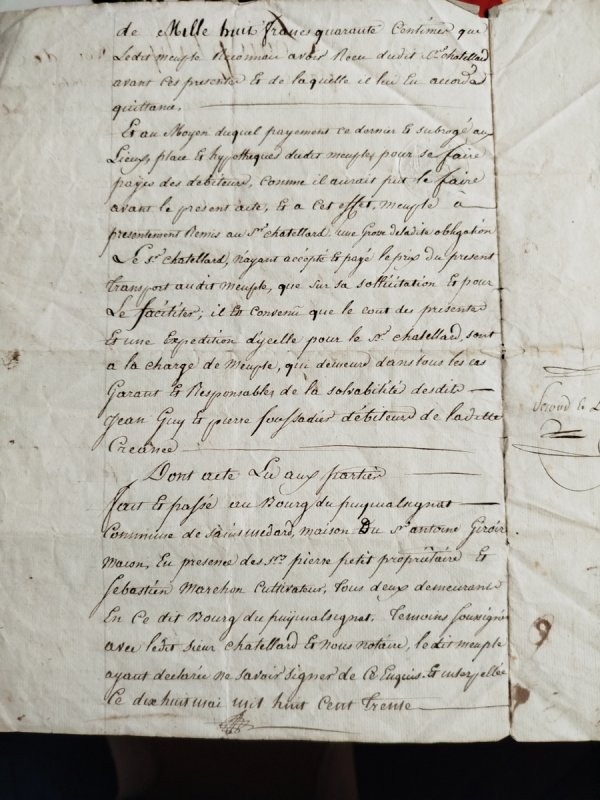 de Mille huit francs quarante Centimes que
Ledit meuple Reconnait avoir Recu dudit Sr. chatellard
avant ces presentes Et de laquelle il lui En accorde
quittance.
Et au Moyen duquel payement ce dernier Est subrogé aux
Lieux, place Et hypotheques dudit meuple, pour se faire
payer des debiteurs, Comme il aurait put le faire
avant le present acte, Et a Cet effet, Meuple à
presentement Remis au Sr. chatellard, une Grosse de ladite obligation
Le Sr. chatellard, N'ayant accepté Et payé le prix du present
Transport audit Meuple, que sur sa sollicitation Et pour
Le faciliter; il Est Convenu que le cout des presentes
Et une Expedition d'ycelle pour le Sr. chatellard, sont
a la charge de Meuple, qui demeure dans tous les cas
Garant Et Responsables de la solvabilité desdits
Jean Guy Et pierre foussadier débiteurs de la ditte
Creance
Dont acte Lu aux parties
fait Et passé au Bourg du puymalsignat
Commune de saint medard, maison Du Sr. antoine Giroir
Macon, En presence des Srs. pierre petit propriétaire Et
Sebastien Marchon Cultivateur, Tous deux demeurant
En Ce dit Bourg du puymalsignat, Temoins Soussignés
avec ledit sieur chatellard Et Nous Notaire, ledit meuple
ayant declaré ne savoir signer de Ce Enquis Et interpellé
Ce dix huit mai mil huit Cent Trente